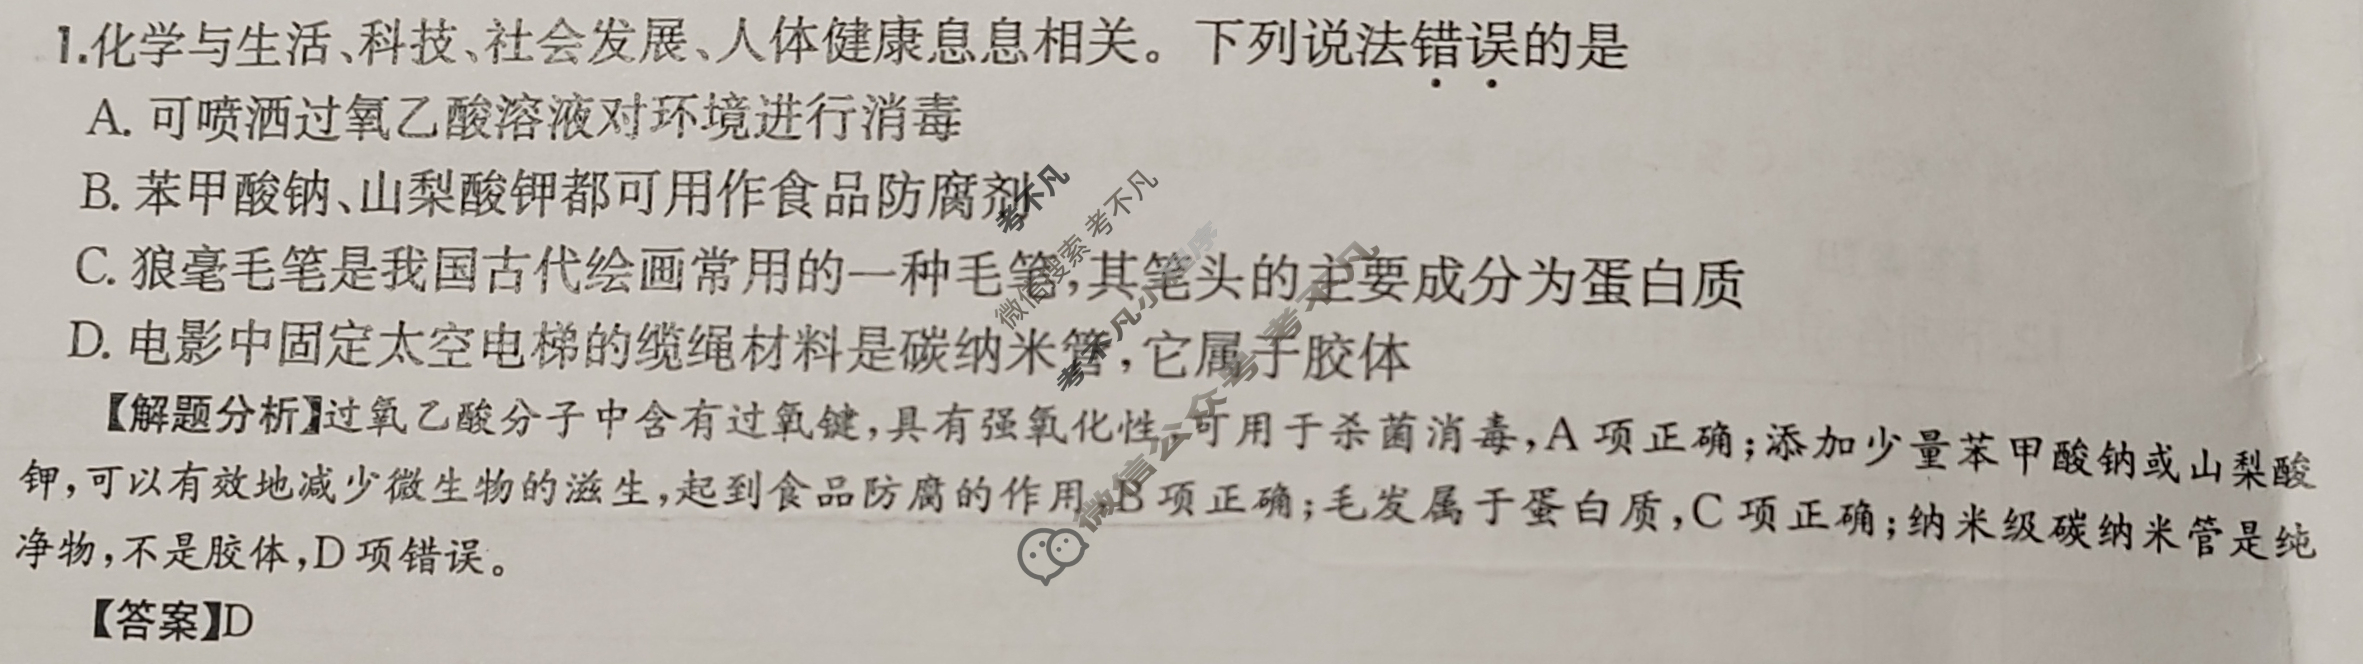 1.化学与生活、科技、社会发展、人体健康息息相关。下列说法错误的是
A. 可喷洒过氧乙酸溶液对环境进行消毒
B. 苯甲酸钠、山梨酸钾都可用作食品防腐剂
C. 狼毫毛笔是我国古代绘画常用的一种毛笔,其笔头的主要成分为蛋白质
D. 电影中固定太空电梯的缆绳材料是碳纳米管,它属于胶体
【解题分析】过氧乙酸分子中含有过氧键,具有强氧化性,可用于杀菌消毒,A 项正确;添加少量苯甲酸钠或山梨酸
钾,可以有效地减少微生物的滋生,起到食品防腐的作用,B 项正确;毛发属于蛋白质,C 项正确;纳米级碳纳米管是纯
净物,不是胶体,D 项错误。
【答案】D
考不凡
微信搜索 考不凡
考不凡小程序
微信公众号 考不凡